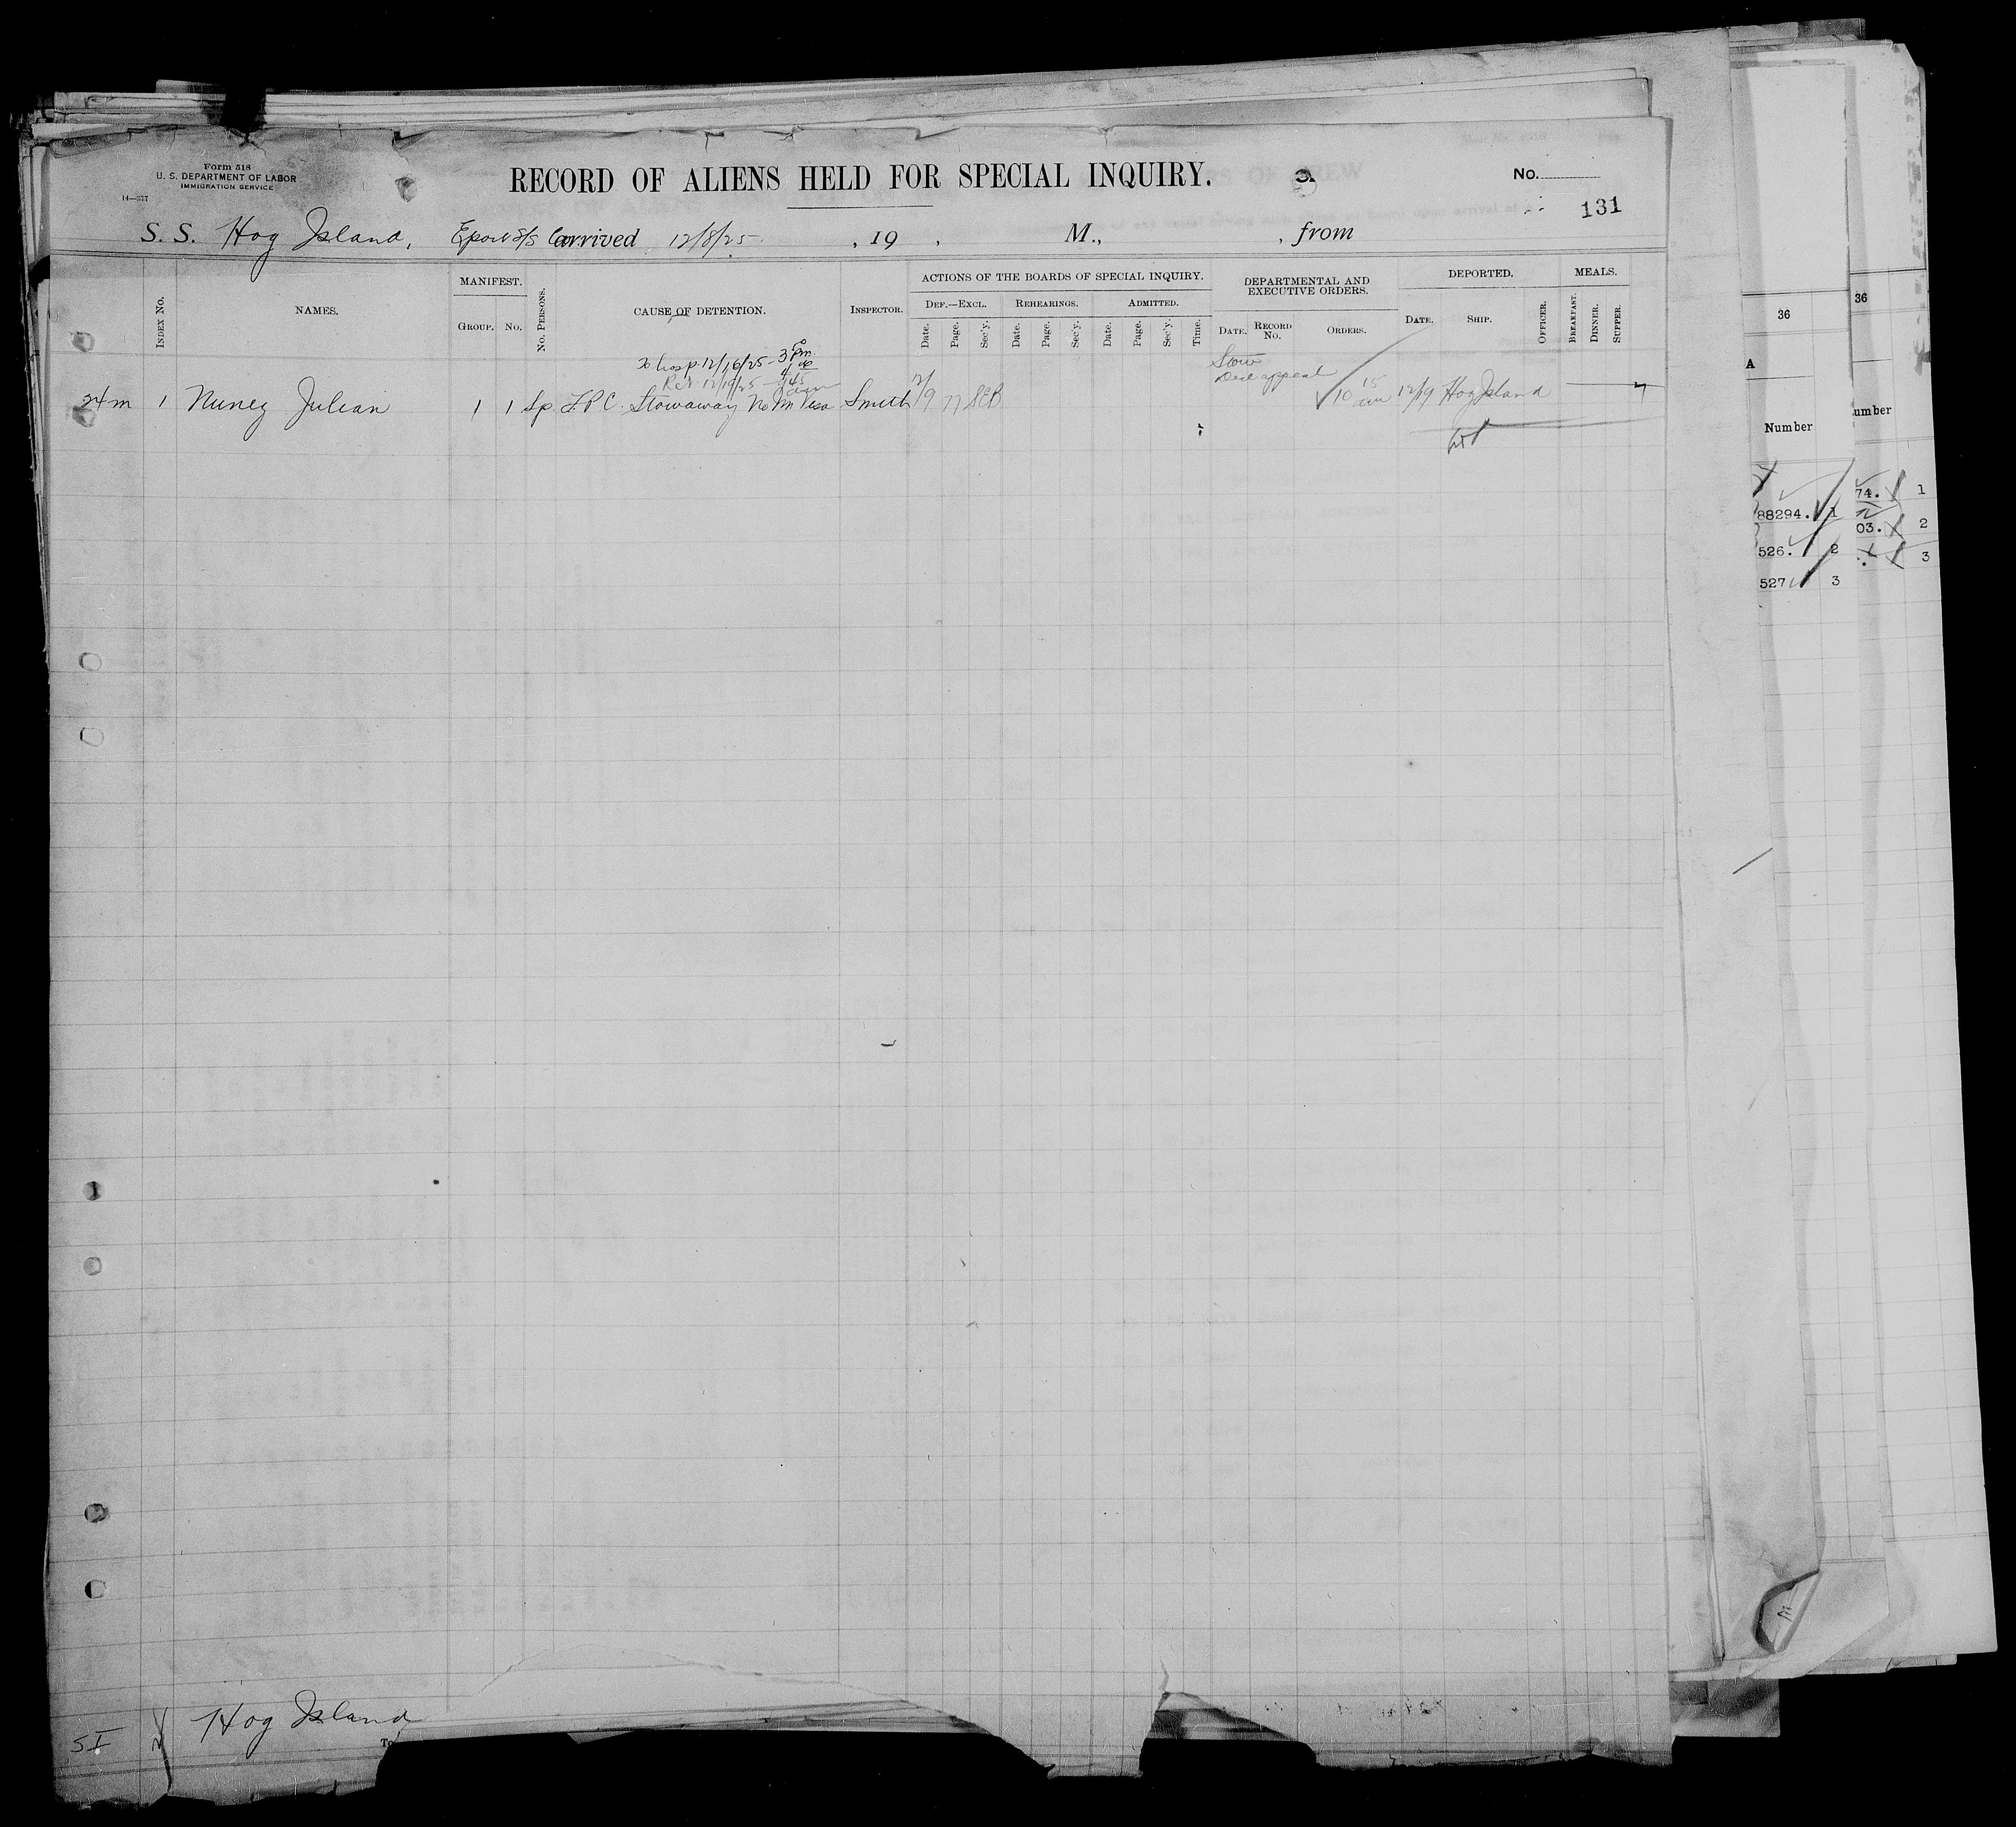 Form 518
U. S. DEPARTMENT OF LABOR
IMMIGRATION SERVICE
14—377
RECORD OF ALIENS HELD FOR SPECIAL INQUIRY.
No.
131
S. S. Hog Island, Export S/S Co. arrived 12/8/25 , 19 , M., , from
Index No.
NAMES.
MANIFEST.
Group. No.
No. Persons.
CAUSE OF DETENTION.
Inspector.
ACTIONS OF THE BOARDS OF SPECIAL INQUIRY.
Def.—Excl. Rehearings. Admitted.
Date. Page. Sec'y. Date. Page. Sec'y. Date. Page. Sec'y. Time.
DEPARTMENTAL AND EXECUTIVE ORDERS.
Date. Record No. Orders.
DEPORTED.
Date. Ship. Officer.
MEALS.
Breakfast. Dinner. Supper.
To hosp. 12/16/25 - 3 pm
Ret 12/19/25 - 9 45
Stow
Decl appeal
24 m 1 Nunez Julian 1 1 Sp. L.P.C. Stowaway No Im Visa Smith 12/9 77 SEB 10 15 am 12/19 Hog Island 7
SI Hog Island
To
36
A
Number
88294. 1
526. 2
527 3
36
umber
74. 1
03. 2
3